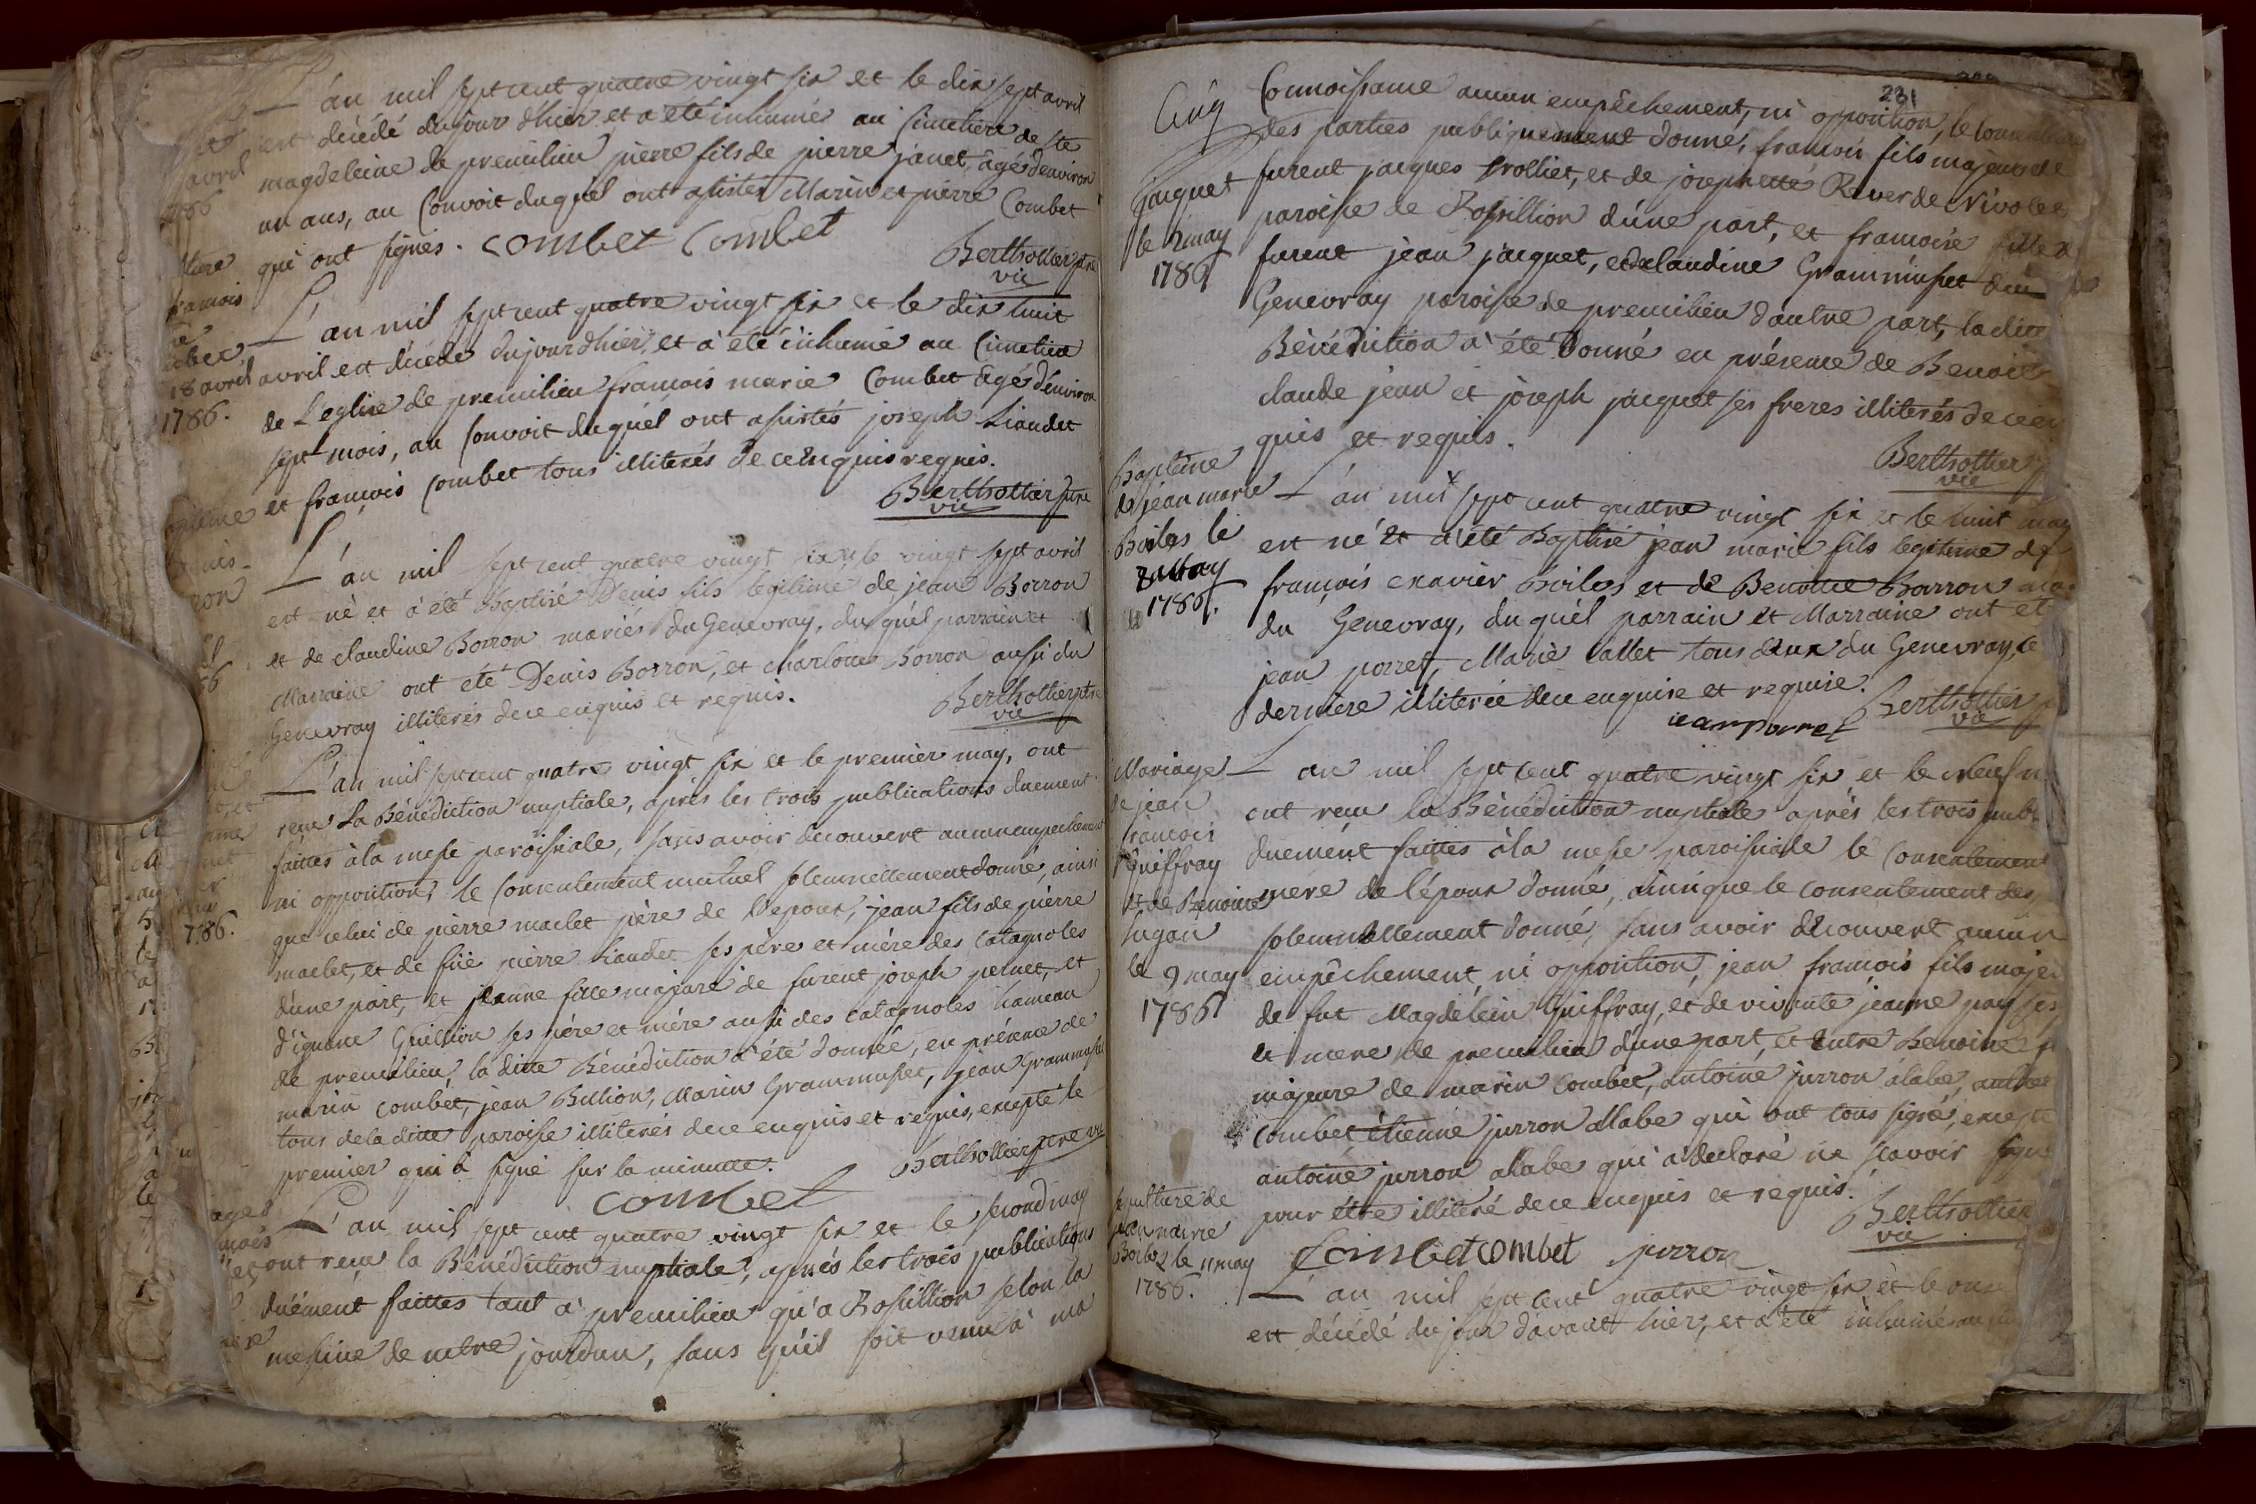 L'an mil sept cent quatre vingt six et le dix sept avril
est décédé dujour d'hier et a été inhumé au Cimetiere de ste
magdeleine de premilieu pierre fils de pierre janet, agé d'environ
un ans, au Convoit duquel ont assistés Marin et pierre Combet
qui ont signés. Combet Combet
Berthollier ptre
vic
L'an mil sept cent quatre vingt six et le dix huit
avril est décédé dujour d'hier, et à été inhumé au Cimetiere
de L'eglise de premilieu francois marie Combet agé d'environ
sept mois, au Convoit duquél ont assistés joseph Liaudet
et françois Combet tous illiterés de ce enquis requis.
Berthollier ptre
vic
18 avril
1786.
L'an mil sept cent quatre vingt six et le vingt sept avril
est né et à été Baptisé Denis fils legitime de jean Borron
et de claudine Borron mariés du Genevray, du quél parrain et
Marraine ont eté Denis Borron, et charlotte Borron aussi du
Genevray illiterés de ce enquis et requis.
Berthollier ptre
vic
L'an mil sept cent quatre vingt six et le premier may, ont
reçu La Bénédiction nuptiale, aprés les trois publications duement
faittes à la messe paroissiale, sans avoir découvert aucun empechement
ni opposition, le Consentement mutuel solemnellement donné, ainsi
que celui de pierre maclet père de l'epoux, jean fils de pierre
maclet, et de fuë pierre Liaudet ses père et mère des Catagnoles
d'une part, et jeanne fille majeure de furent joseph pernet, et
d'ignare Guillion ses père et mère aussi des catagnoles hameau
de premilieu, la ditte Bénédiction a été donnée, en présence de
marin Combet, jean Billion, Marin Grammusset, jean Grammusset
tous de la ditte paroisse illiterés de ce enquis et requis, excepté le
premier qui à signé sur la minutte.
Berthollier ptre vic
Combet
786.
L'an mil sept cent quatre vingt six et le second may
ont reçu la Bénédiction nuptiale, après les trois publications
duément faittes tant à premilieu qu'a Rossillion selon la
de notre jourdan, sans qu'il soit venu à ma
231
Connoissance aucun empêchement, ni opposition, le consentement
des parties publiquement donné, francois fils majeur de
furent jacques Trolliet, et de josephette Rever de Nivolet
paroisse de Rossillion d'une part, et francoise fille
furent jean jacquet, et de claudine Grammusset du
Genevray paroisse de premilieu d'autre part, la ditte
Bénédiction à été Donné en présence de Benoit
claude jean et joseph jacquet ses freres illiterés de ce en
quis et requis.
Berthollier
vic
jacquet
le 2 may
1786
Baptême
de jean marie
Boiloz le
8 may
1786.
L'an mil sept cent quatre vingt six et le huit may
est né et a été Baptisé jean marie fils legitime de
françois exavier Boiloz et de Benoitte Borron
du Genevray, du quél parrain et Marraine ont eté
jean porret, Marie Callet tous deux du Genevray, le
derniere illiterée de ce enquise et requise.
jean porret
Berthollier
vic
Mariage
de jean
francois
Guiffray
et de Benoitte
le 9 may
1786
L'an mil sept cent quatre vingt six et le neuf
ont reçu la Bénédiction nuptiale aprés les trois
duement faittes à la messe paroissiale le Consentement
mere de l'époux donné, ainsi que le consentement des
solemnellement donné, sans avoir découvert aucun
empêchement, ni opposition, jean francois fils
de fut Magdelein Guiffray, et de vivante jeanne pay ses
et mere de premilieu d'une part, et entre Benoitte
majeure de marin Combet, antoine jurron alabe,
Combet étienne jurron alabe qui ont tous signé, excepté
antoine jurron alabe qui a déclaré ne scavoir
pour être illiteré de ce enquis et requis.
Berthollier
vic
Combet combet jurron
Boiloz le 11 may
1786.
L'an mil sept cent quatre vingt six et le onze
est décédé du jour d'avant hier, et a été inhumé au